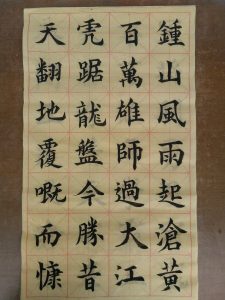 鍾山風雨起滄黃
百萬雄師過大江
虎踞龍盤今勝昔
天翻地覆嘅而慷